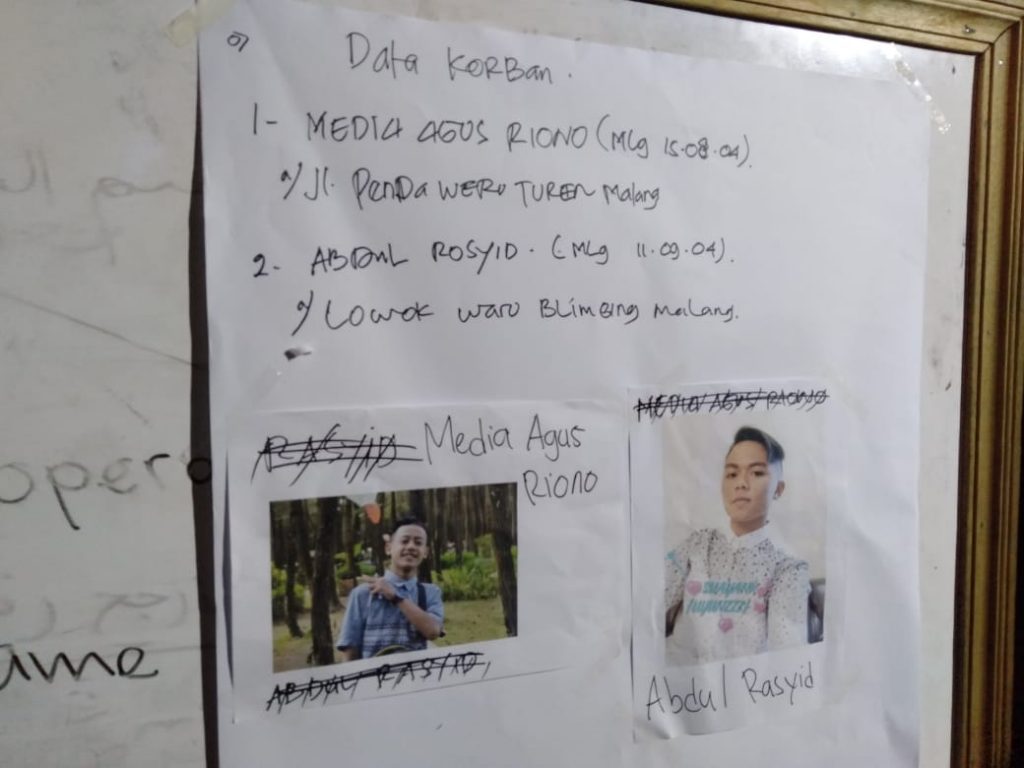 Data Korban.
1- MEDIA AGUS RIONO (Mlg 15.08.04).
a/ Jl. Penda WERU TUREN Malang
2- ABDUL ROSYID. (Mlg 11.09.04).
a/ Lowok waru BLimBing Malang.
RASYID Media Agus
Riono
ABDUL RASYID,
MEDIA AGUS RIONO
Abdul Rasyid
opero
ame